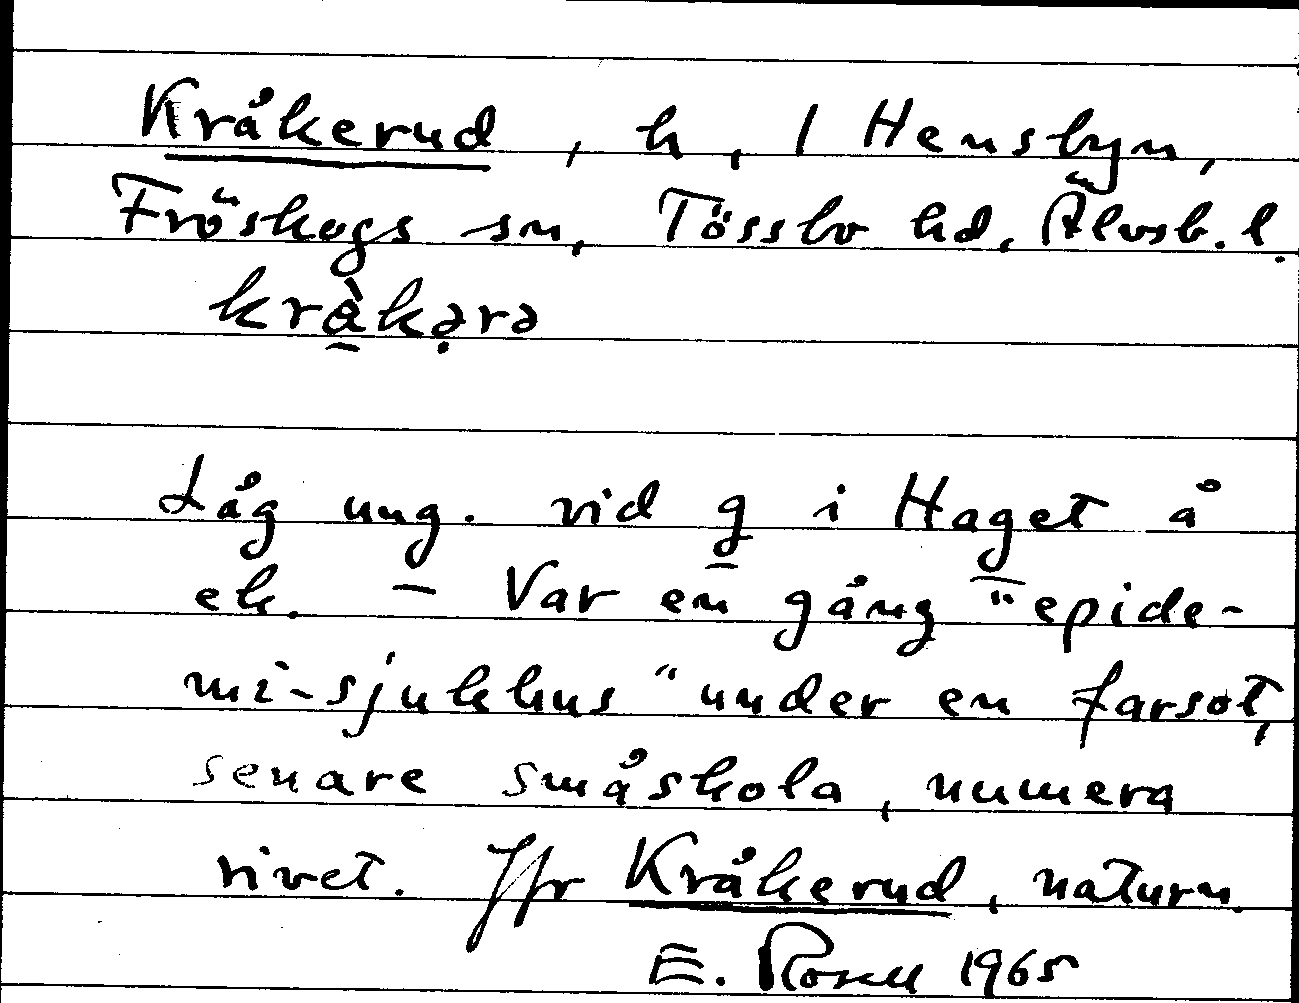 Kråkerud, h, 1 Hensbyn,
Fröskogs sn, Tössbo hd, Älvsb. l.
krå̀kərə
Låg ung. vid g i Haget å
ek. – Var en gång "epide-
mi-sjukhus" under en farsot,
senare småskola, numera
rivet. Jfr Kråkerud, naturn.
E. Rosell 1965